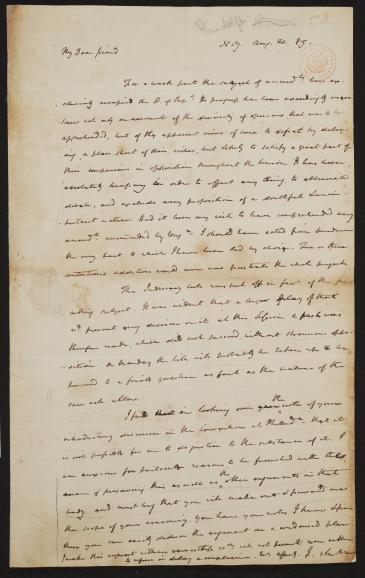 Randolph
My Dear friend N.Y. Aug. 21. 89.
For a week past the subject of amendts. has ex-
clusively occupied the H. of Reps. Its progress has been exceedingly weari-
some not only on account of the diversity of opinions that was to be
apprehended, but of the apparent views of some to defeat by delay-
ing a plan short of their wishes, but likely to satisfy a great part of
their companions in opposition throughout the Union. It has been
absolutely necessary in order to effect any thing, to abbreviate
debate, and exclude every proposition of a doubtful & unim-
portant nature. Had it been my wish to have comprehended every
amendt. recommended by Virga. I should have acted from prudence
the very part to which I have been led by choice. Two or three
contentious additions would even now frustrate the whole project.
The Judiciary bill was put off in favr. of the pre-
ceding subject. It was evident that a longer delay of that
wd. prevent any decision on it at this Session. A push was
therefore made, which did not succeed without strenuous oppo-
sition. On monday the bill will probably be taken up & be
pursued to a final question as fast as the nature of the
case will allow.
I find on looking over the notes of your
introductory discourse in the Convention at Philada. that it
is not possible for me to do justice to the substance of it. I
am anxious for particular reasons to be furnished with the
means of preserving this as well as the other arguments in that
body, and must beg that you will make out & forward me
the scope of your reasoning. You have your notes I know & from
these you can easily deduce the argument on a condensed plan.
I make this request with an earnestness wch. will not permit you either
to refuse or delay a compliance.